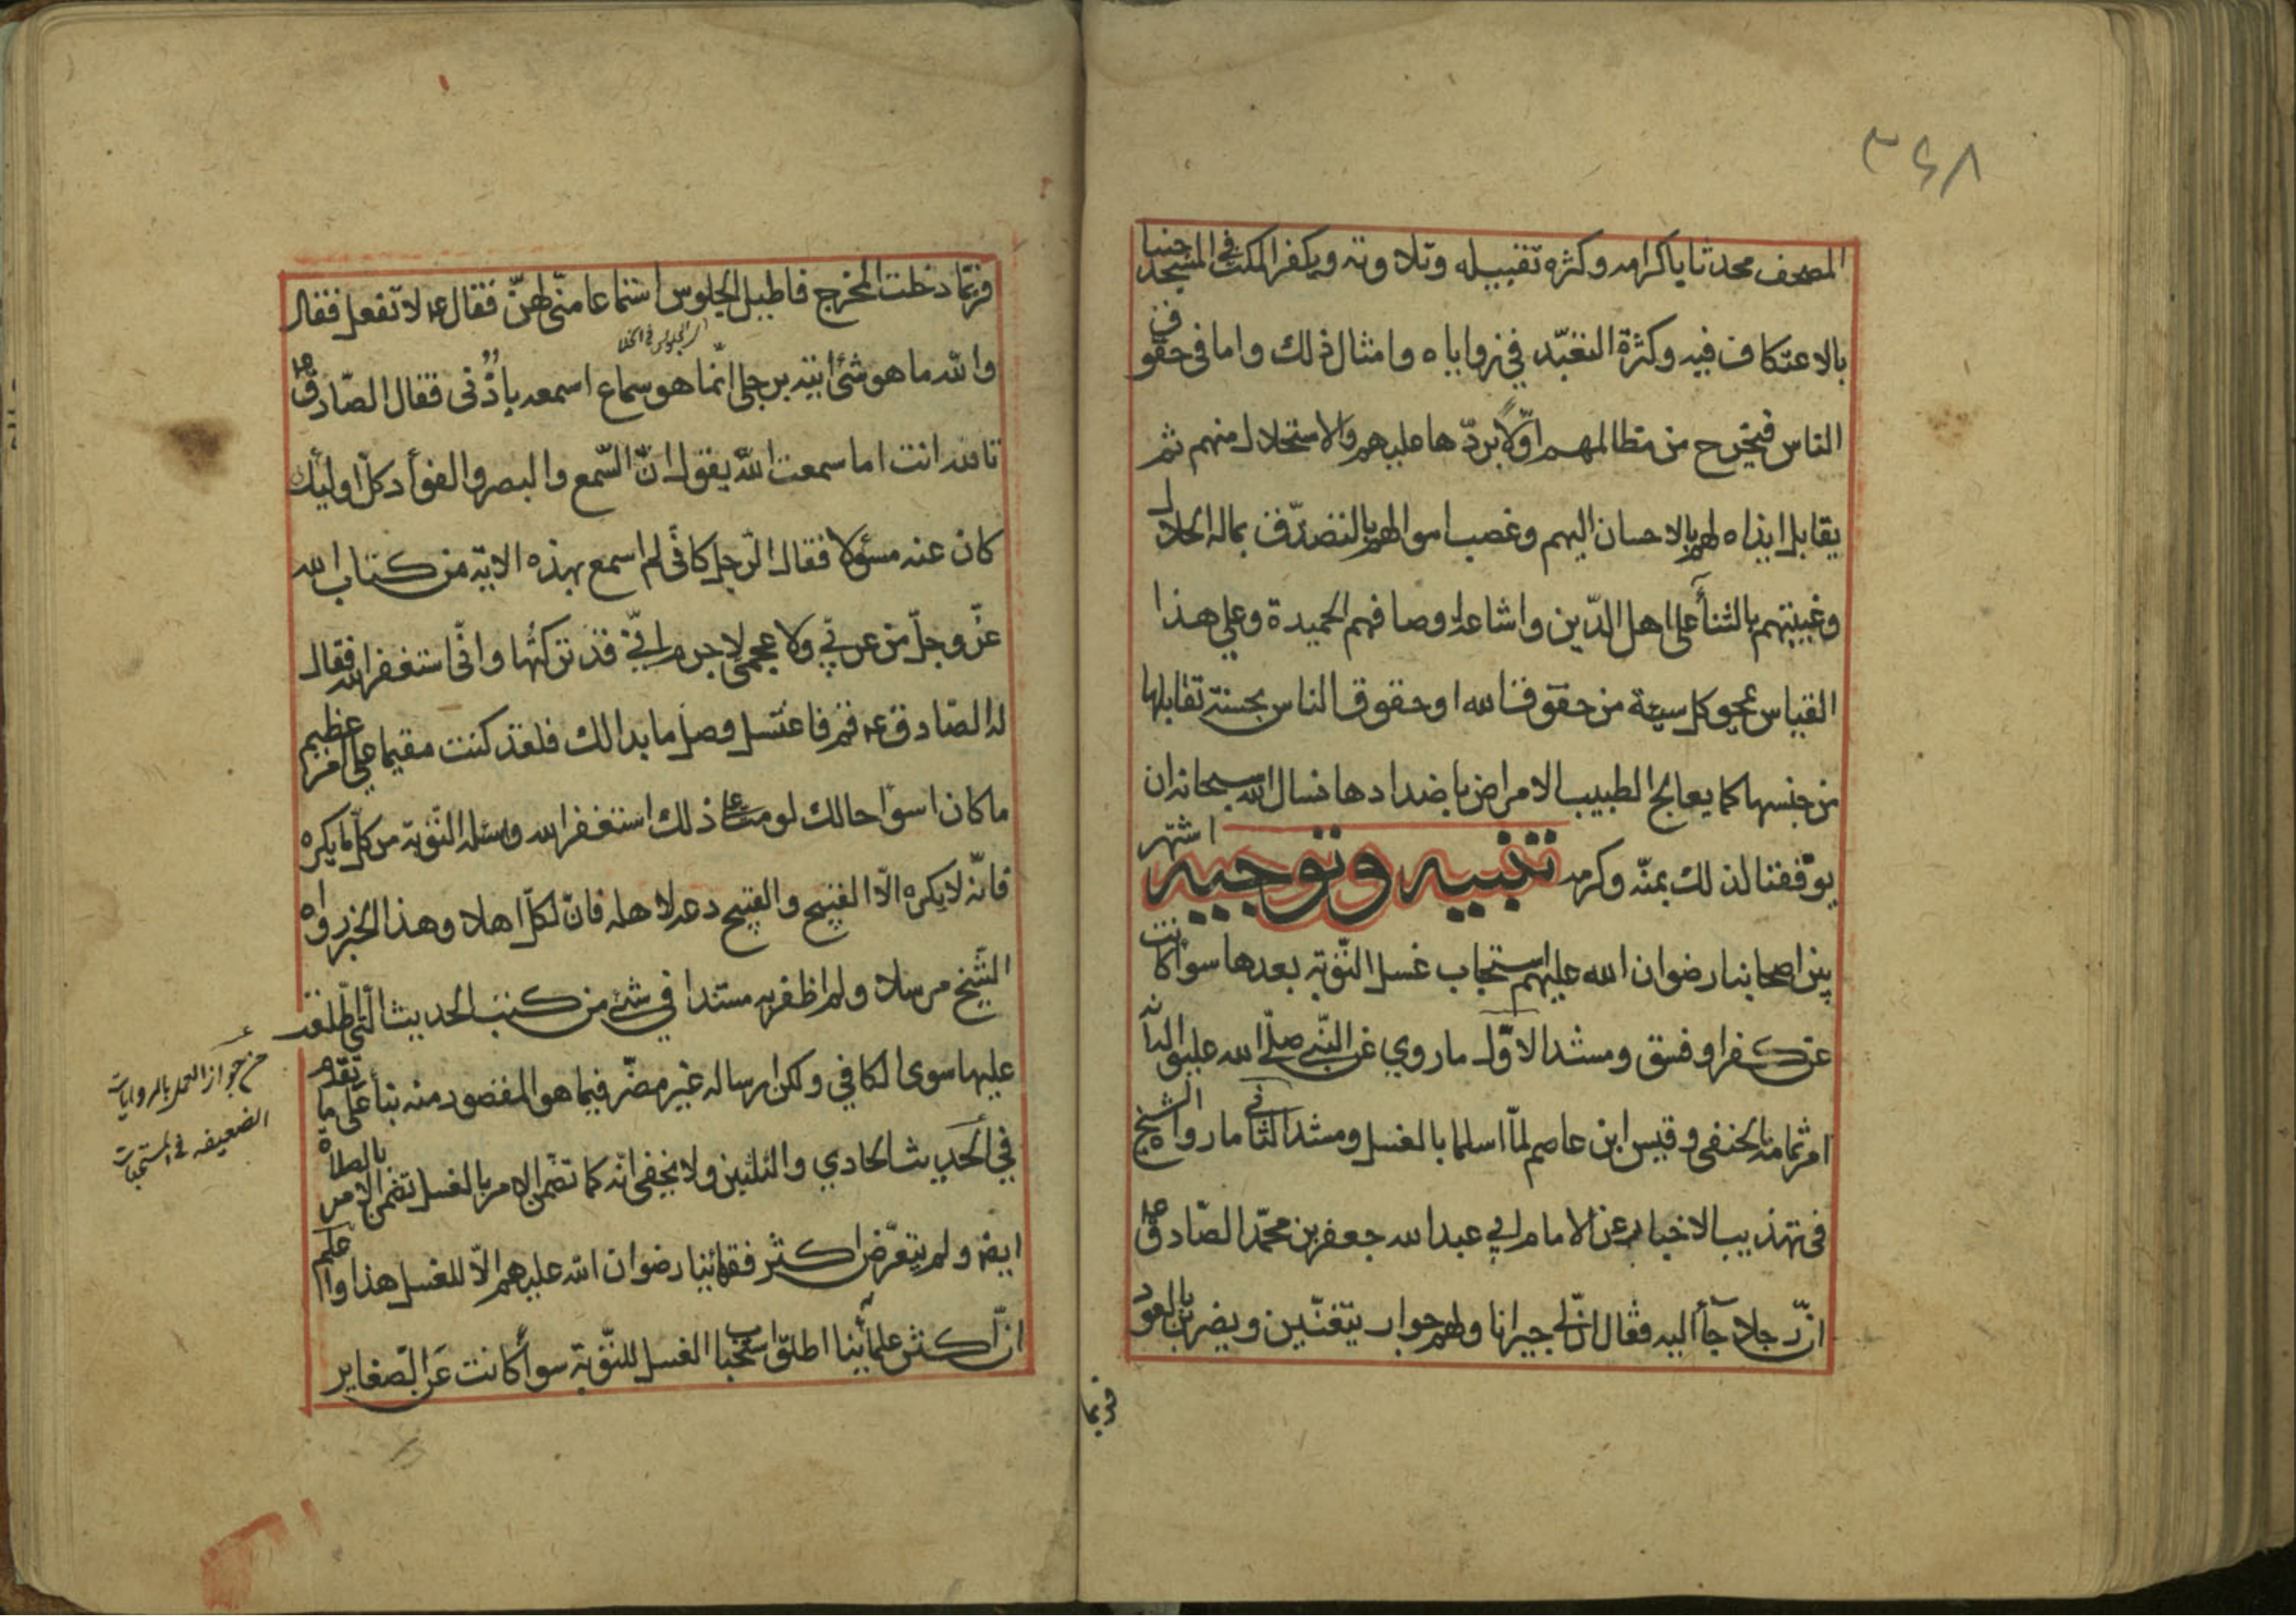 ٣٦٨
المصحف محدثا باكرامه وكثره تقبيله وتلاوته ويكفر المكث في المسجد جنبا
بالاعتكاف فيه وكثرة التعبّد في زواياه وامثال ذلك واما في حقوق
الناس فيخرج من مظالمهم اوّلاً بردّها عليهم والاستحلال منهم ثم
يقابل ايذاه لهم بالاحسان اليهم وغصب اموالهم بالتصدّق بماله الحلال
وغيبتهم بالثنأ على اهل الدّين واشاعة اوصافهم الحميدة وعلى هذا
القياس يمحو كل سيئة من حقوق الله او حقوق الناس بحسنة تقابلها
من جنسها كما يعالج الطبيب الامراض باضدادها نسال الله سبحانه ان
يوّفقنا لذلك بمنّه وكرمه تنبيه وتوجيه اشتهر
بين اصحابنا رضوان الله عليهم استحباب غسل التّوبة بعدها سوأ كانت
عن كفر او فسق ومستند الاوّل ما روي عن النّبي صلّى الله عليه واله انه
امر ثمامة الحنفي وقيس ابن عاصم لمّا اسلما بالغسل ومستند الثاني ما رواه الشيخ
في تهذيب الاخبار عن الامام ابي عبد الله جعفر بن محمّد الصّادق ع
انّ رجلا جأ اليه فقال انّ لي جيرانا ولهم جوار يتغنّين ويضربن بالعود
فربما
فربّما دخلت المخرج فاطيل الجلوس استماعا منّي لهنّ فقال ع لا تفعل فقال
اى الجلوس في الخلا
والله ما هو شئ اتيته برجلي انّما هو سماع اسمعه باذُني فقال الصّادق ع
تالله انت اما سمعت الله يقول انّ السّمع والبصر والفوأد كلّ اولئك
كان عنه مسؤلا فقال الرّجل كانّي لم اسمع بهذه الاية من كتاب الله
عزّ وجلّ من عربّي ولا عجمي لا جرم انّي قد تركتُها وانّي استغفر الله فقال
له الصّادق ع قم فاغتسل وصل ما بدا لك فلقد كنت مقيما على امر عظيم
ما كان اسوأ حالك لو مت على ذلك استغفر الله واسئله التّوبة من كلّ ما يكره
فانّه لا يكره الّا القبيح والقبيح دعه لاهله فانّ لكلّ اهلا وهذا الخبر رواه
الشّيخ مرسلا ولم اظفر به مسندا في شئ من كتب الحديث الّتي اطّلعت
عليها سوى الكافي ولكن ارساله غير مضّر فيما هو المقصود منه بنأ على ما تقدم
في الحديث الحادي والثلثين ولا يخفى انّه كما تضمن الامر بالغسل تضمن الامر بالصلاة
ايضا ولم يتعرّض اكثر فقهائنا رضوان الله عليهم الّا للغسل هذا واعلم
انّ اكثر علمأينا اطلق استحباب الغسل للتّوبة سوأ كانت عن الصّغاير
من جواز العمل بالروايات
الضعيفه في المستحبات